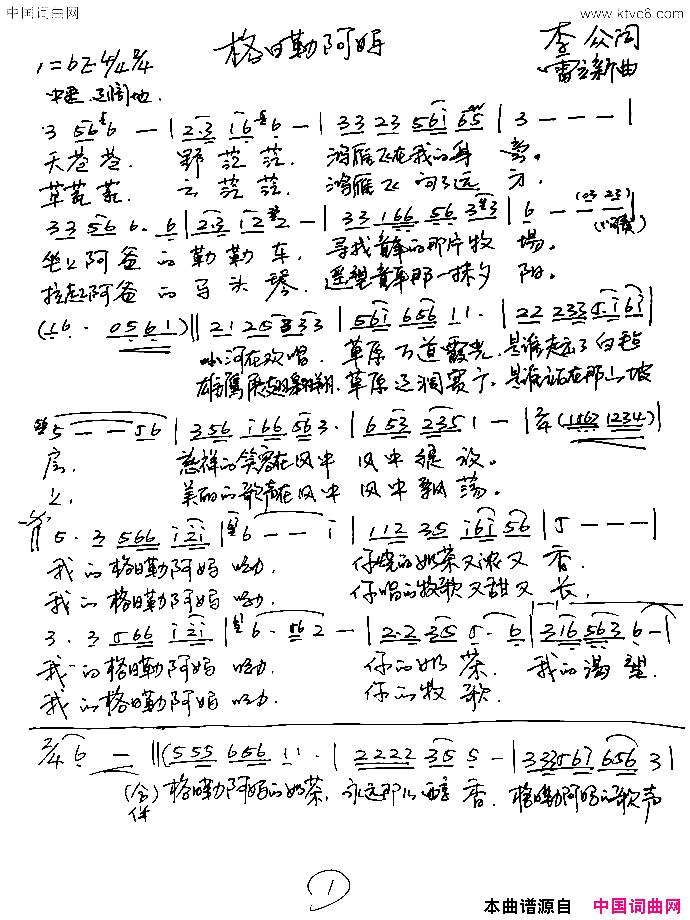 中国词曲网
www.ktvc8.com
格日勒阿妈
李众词
雷立新曲
1=bE 4/4 2/4
中速 辽阔地
3 56 6 — | 2·3 16 6 — | 33 23 561 65 | 3 — — — |
天苍苍. 野茫茫. 鸿雁飞在我的身旁。
草荒荒. 云茫茫. 鸿雁飞向了远方.
33 56 6. 6 | 2·3 12 2 — | 33 166 56 3 3 | 6 — — (03 23) |
坐上阿爸的勒勒车. 寻找童年的那片牧場。
拉起阿爸的马头琴. 遥望童年那一抹夕阳。
(16 · 0561) ‖ 2125 3 33 | 561 656 11 · | 22 233 5163 |
小河在欢唱. 草原万道霞光. 是谁走出了白毡
雄鹰展翅翱翔. 草原辽阔宽广. 是谁站在那山坡
5 — — 56 | 356 166 563· | 6 53 2351 — | 2/4 (1563 1234) |
房. 慈祥的笑容在风中 风中绽放。
上. 美丽的歌声在风中 风中飘荡。
5. 3 566 121 | 6 — — 1 | 112 35 161 56 | 5 — — — |
我的格日勒阿妈呦. 你烧的奶茶又浓又香.
我的格日勒阿妈呦. 你唱的牧歌又甜又长.
3. 3 566 121 | 6 · 56 2 — | 2·2 35 5 · 6 | 316 563 6 — |
我的格日勒阿妈呦 你的奶茶. 我的渴望.
我的格日勒阿妈呦. 你的牧歌.
2/4 6 — ‖ (555 656 11 · | 2222 35 5 — | 333567 656 3 |
(合伴) 格日勒阿妈的奶茶. 永远那么醇香. 格日勒阿妈的歌声
1
本曲谱源自 中国词曲网